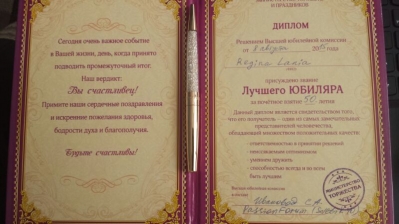 Сегодня очень важное событие
в Вашей жизни, день, когда принято
подводить промежуточный итог.
Наш вердикт:
Ты счастливец!
Примите наши сердечные поздравления
и искренние пожелания здоровья,
бодрости духа и благополучия.
Будьте счастливы!
И ПРАЗДНИКОВ
ДИПЛОМ
Решением Высшей юбилейной комиссии
от 8 года
присуждено звание
Лучшего ЮБИЛЯРА
за почётное взятие 50 летия
Данный диплом является свидетельством того,
что его получатель - один из самых замечательных
представителей человечества,
обладающий множеством положительных качеств:
- ответственностью в принятии решений
- неиссякаемым оптимизмом
- умением дружить
- способностью всегда и во всем
быть лучшим
МИНИСТЕРСТВО
ТОРЖЕСТВА